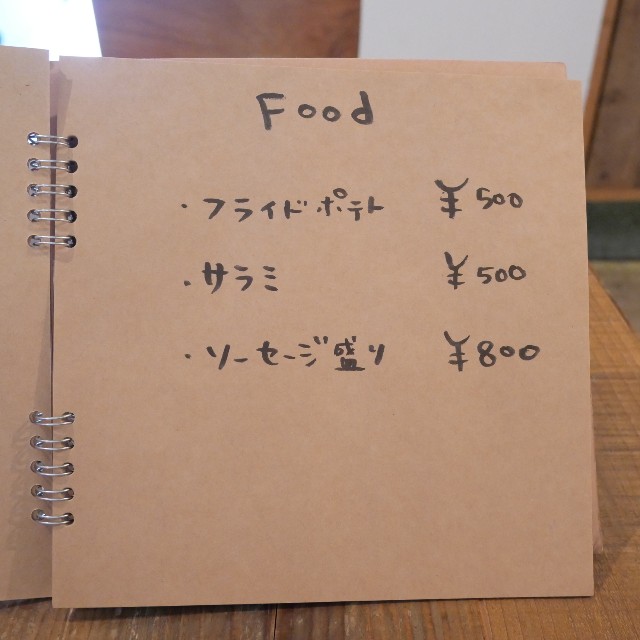 Food
・フライドポテト ¥500
・サラミ ¥500
・ソーセージ盛り ¥800